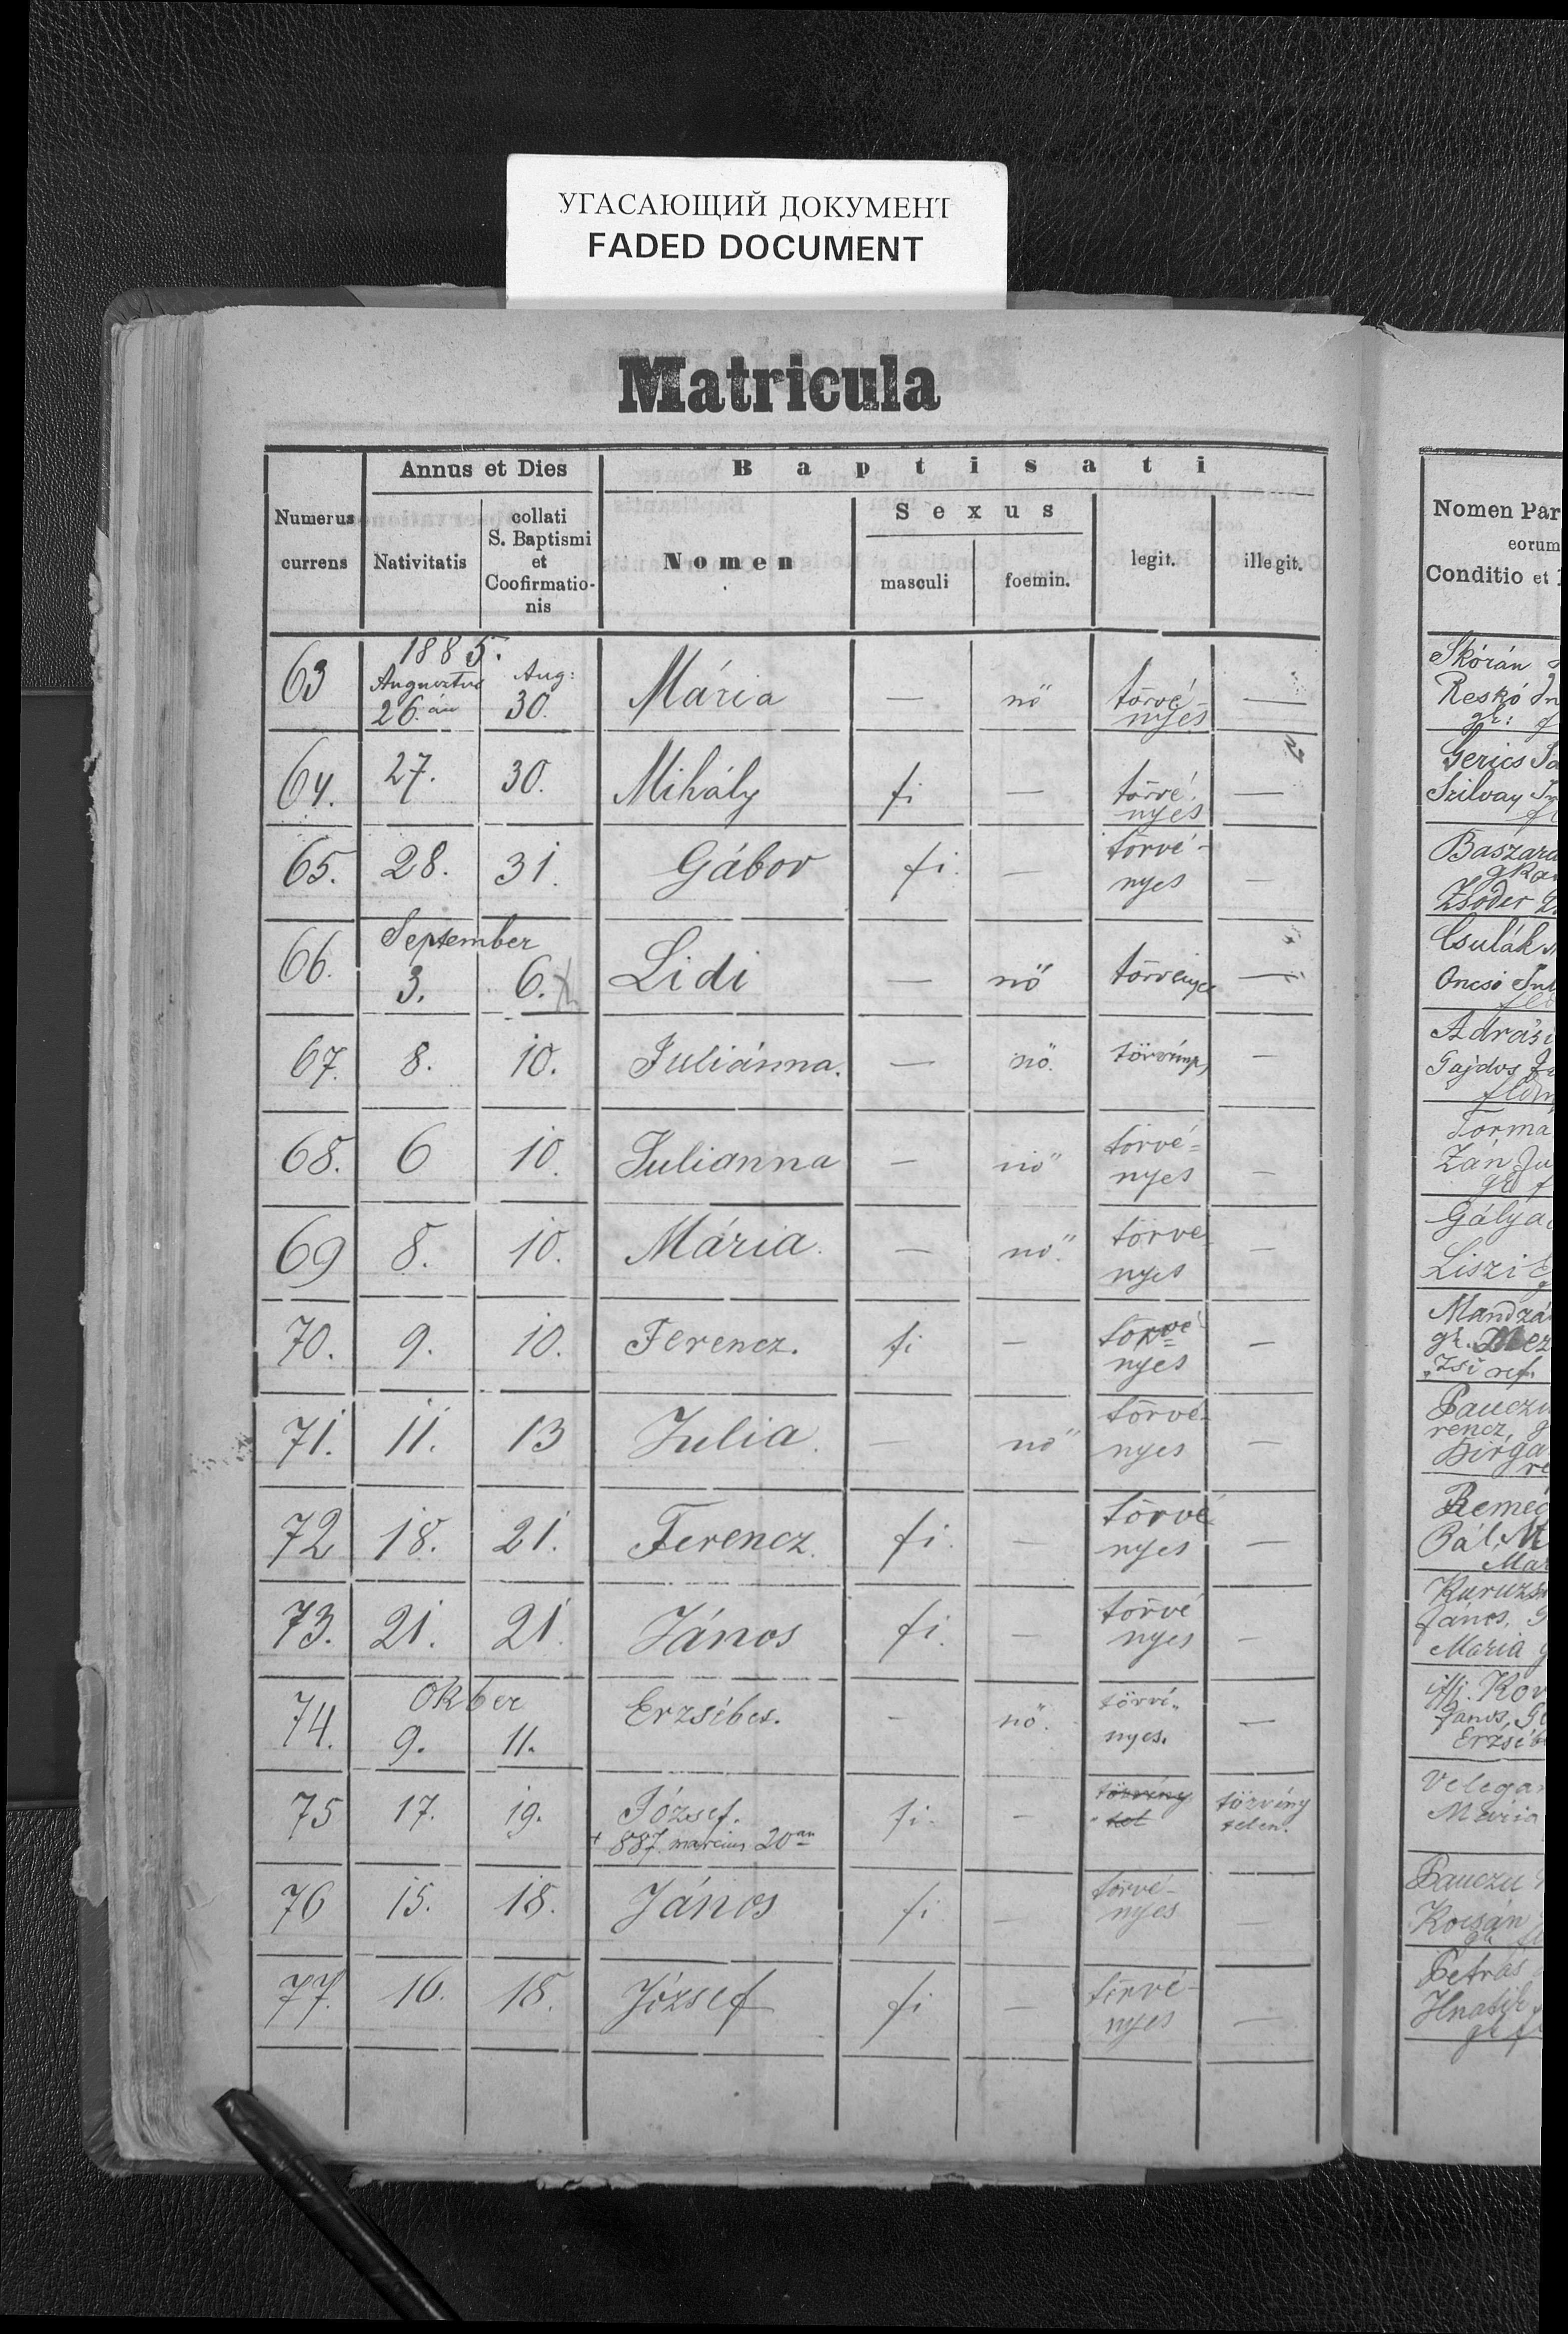 УГАСАЮЩИЙ ДОКУМЕНТ
FADED DOCUMENT
Matricula
Numerus currens
Annus et Dies
Nativitatis
collati
S. Baptismi
et
Coofirmatio-
nis
Baptisati
Nomen
Sexus
masculi
foemin.
legit.
illegit.
1885.
63 Augusztus 26.án Aug: 30. Mária — nő törvé-
nyes —
64. 27. 30. Mihály fi — törvé-
nyes —
65. 28. 31. Gábor fi. — törvé-
nyes —
September
66. 3. 6. Lidi — nő törvényes —
67. 8. 10. Juliánna. — nő. törvényes —
68. 6 10. Julianna — nő törvé=
nyes —
69 8. 10. Mária. — nő. törvé
nyes —
70. 9. 10. Ferencz. fi — törvé=
nyes —
71. 11. 13 Julia. — nő törvé-
nyes —
72 18. 21. Ferencz. fi. — törvé
nyes —
73. 21. 21. János fi. — törvé
nyes —
Okber
74. 9. 11. Erzsébet. — nő. törvé„
nyes. —
75 17. 19. József. fi. — törvény törvény
telen.
+ 887. marcius 20án
76 15. 18. János fi — törvé-
nyes —
77. 16. 18. József fi — törvé-
nyes —
Nomen Par
eorum
Conditio et
Skórán
Reskó
gk: f
Gerics
Szilvay
Baszara
Zsoder
Csulák
Oncsi
Adrási
Gajdos
Torma
Zán Ju
Gálya
Liszi
Mandzá
gk. Mez
Zsi ref.
Pauczu
rencz, g
Hirga
re
Remec
Pál, M
Mar
Kuruzs
János, G
Maria g
ifj. Kov
János, G
Erzséb
Velega
Mária
Pauczu
Kocsán
Petrás
Hnatik